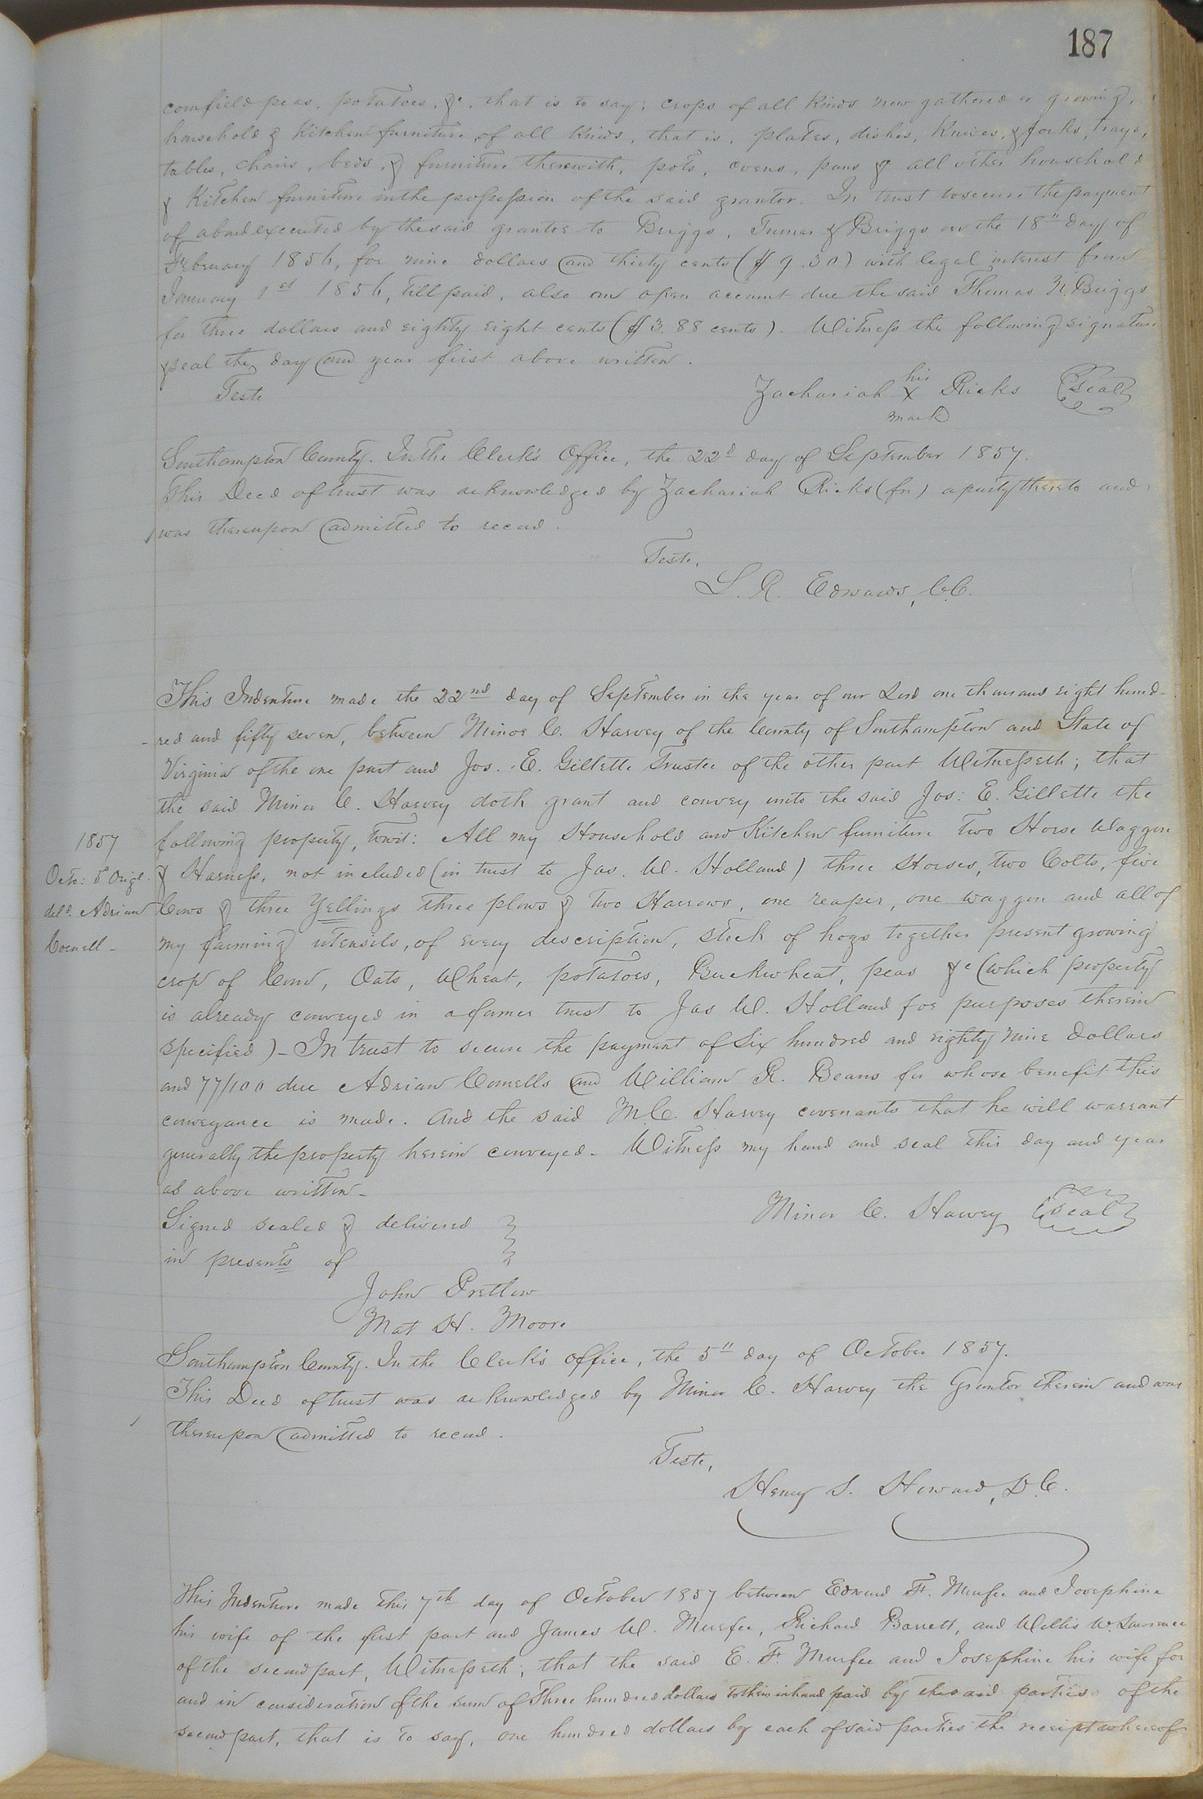 187
cornfield peas, potatoes, &c, that is to say; crops of all kinds now gathered or growing,
household & Kitchen furniture of all kinds, that is, plates, dishes, knives, & forks, trays,
tables, chairs, beds, & furniture therewith, pots, ovens, pans & all other household
& Kitchen furniture in the possession of the said grantor. In trust to secure the payment
of a bond executed by the said grantor to Briggs, Turner & Briggs on the 18th day of
February 1856, for nine dollars and thirty cents ($9.30) with legal interest from
January 1st 1856, till paid, also an open account due the said Thomas N. Briggs
for three dollars and eighty eight cents ($3.88 cents). Witness the following signature
& seal the day and year first above written.
Teste
Zachariah his X mark Ricks Seal
Southampton County. In the Clerk's Office, the 22d day of September 1857.
This Deed of trust was acknowledged by Zachariah Ricks (fn) a party thereto and
was thereupon admitted to record.
Teste,
L. R. Edwards, C.C.
This Indenture made the 22nd day of September in the year of our Lord one thousand eight hund-
-red and fifty seven, between Minor C. Harvey of the County of Southampton and State of
Virginia of the one part and Jos. E. Gillette Trustee of the other part Witnesseth; that
the said Minor C. Harvey doth grant and convey unto the said Jos: E. Gillette the
following property, towit: All my Household and Kitchen furniture Two Horse Waggon
& Harness, not included (in trust to Jas. W. Holland) three Horses, two Colts, five
Cows & three Yellings three plows & Two Harrows, one reaper, one waggon and all of
my farming utensils, of every description, stock of hogs together present growing
crop of Corn, Oats, Wheat, potatoes, Buckwheat, peas &c (which property
is already conveyed in a former trust to Jas W. Holland for purposes therein
specified) - In trust to secure the payment of Six hundred and eighty nine dollars
and 77/100 due Adrian Cornells and William R. Beans for whose benefit this
conveyance is made. And the said M.C. Harvey covenants that he will warrant
generally the property herein conveyed - Witness my hand and seal this day and year
as above written -
1857
Octo: 5 Origl.
deld. Adrian
Cornell -
Minor C. Harvey Seal
Signed sealed & delivered
in presents of
John Pretlow
Mat H. Moore
Southampton County. In the Clerk's office, the 5th day of October 1857.
This Deed of trust was acknowledged by Minor C. Harvey the Grantor therein and was
thereupon admitted to record.
Teste,
Henry S. Howard, D.C.
This Indenture made this 7th day of October 1857 between Edward F. Murfee and Josephine
his wife of the first part and James W. Murfee, Richard Barrett, and Willis W. Lawrence
of the second part, Witnesseth; that the said E. F. Murfee and Josephine his wife for
and in consideration of the sum of Three hundred dollars to them in hand paid by the said parties of the
second part, that is to say, one hundred dollars by each of said parties the receipt whereof